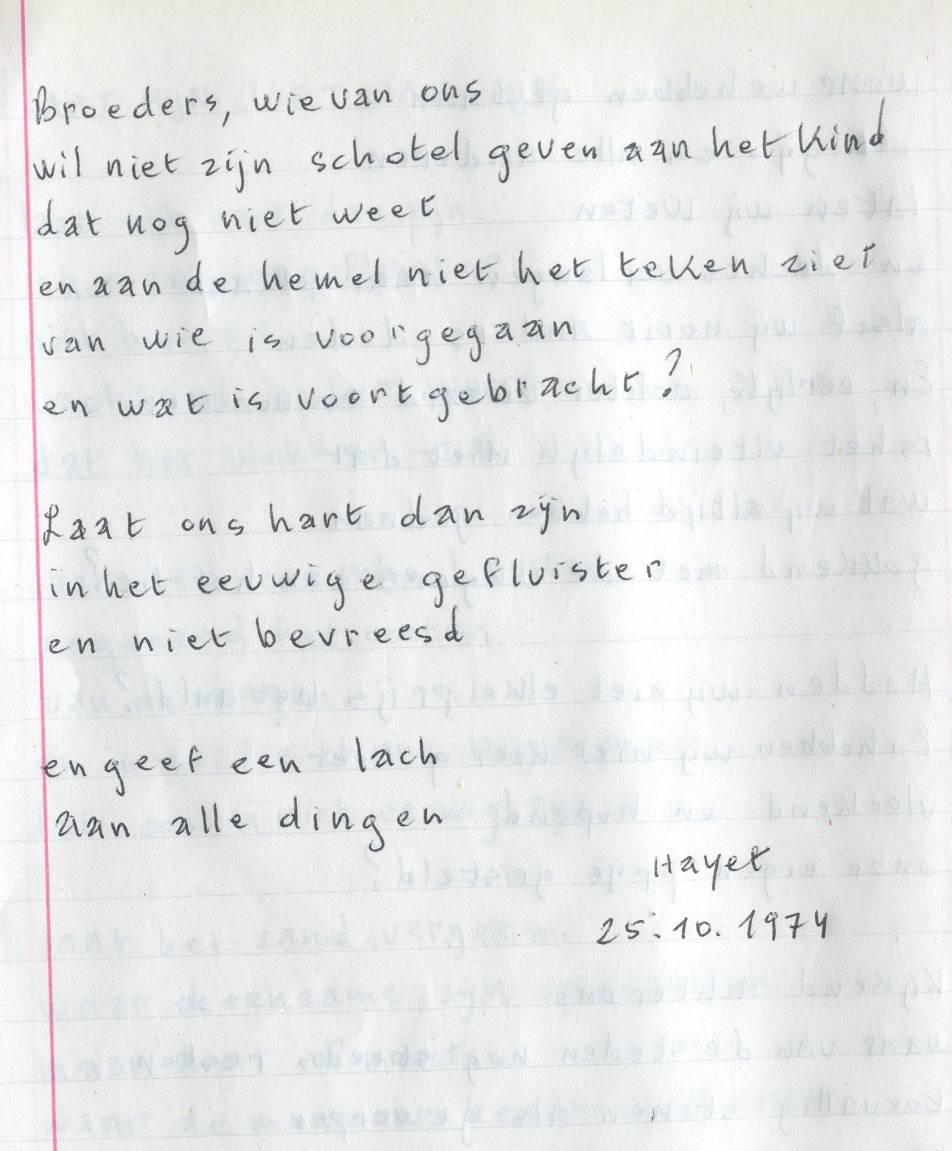 Broeders, wie van ons
wil niet zijn schotel geven aan het kind
dat nog niet weet
en aan de hemel niet het teken ziet
van wie is voorgegaan
en wat is voortgebracht?
Laat ons hart dan zijn
in het eeuwige gefluister
en niet bevreesd
en geef een lach
aan alle dingen
Hayet
25.10.1974